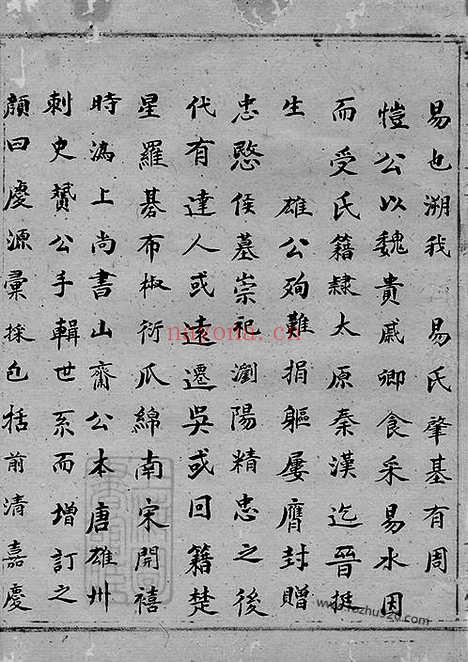 易也溯我　易氏肇基有周
愷公以魏貴戚卿食采易水因
而受氏籍隸太原秦漢迄晉挺
生　雄公殉難捐軀屢膺封贈
忠愍侯墓崇祀瀏陽精忠之後
代有達人或遠遷吳或回籍楚
星羅碁布椒衍瓜綿南宋開禧
時溈上尚書山齋公本唐雄州
刺史贇公手輯世系而增訂之
顏曰慶源彙採包括前清嘉慶